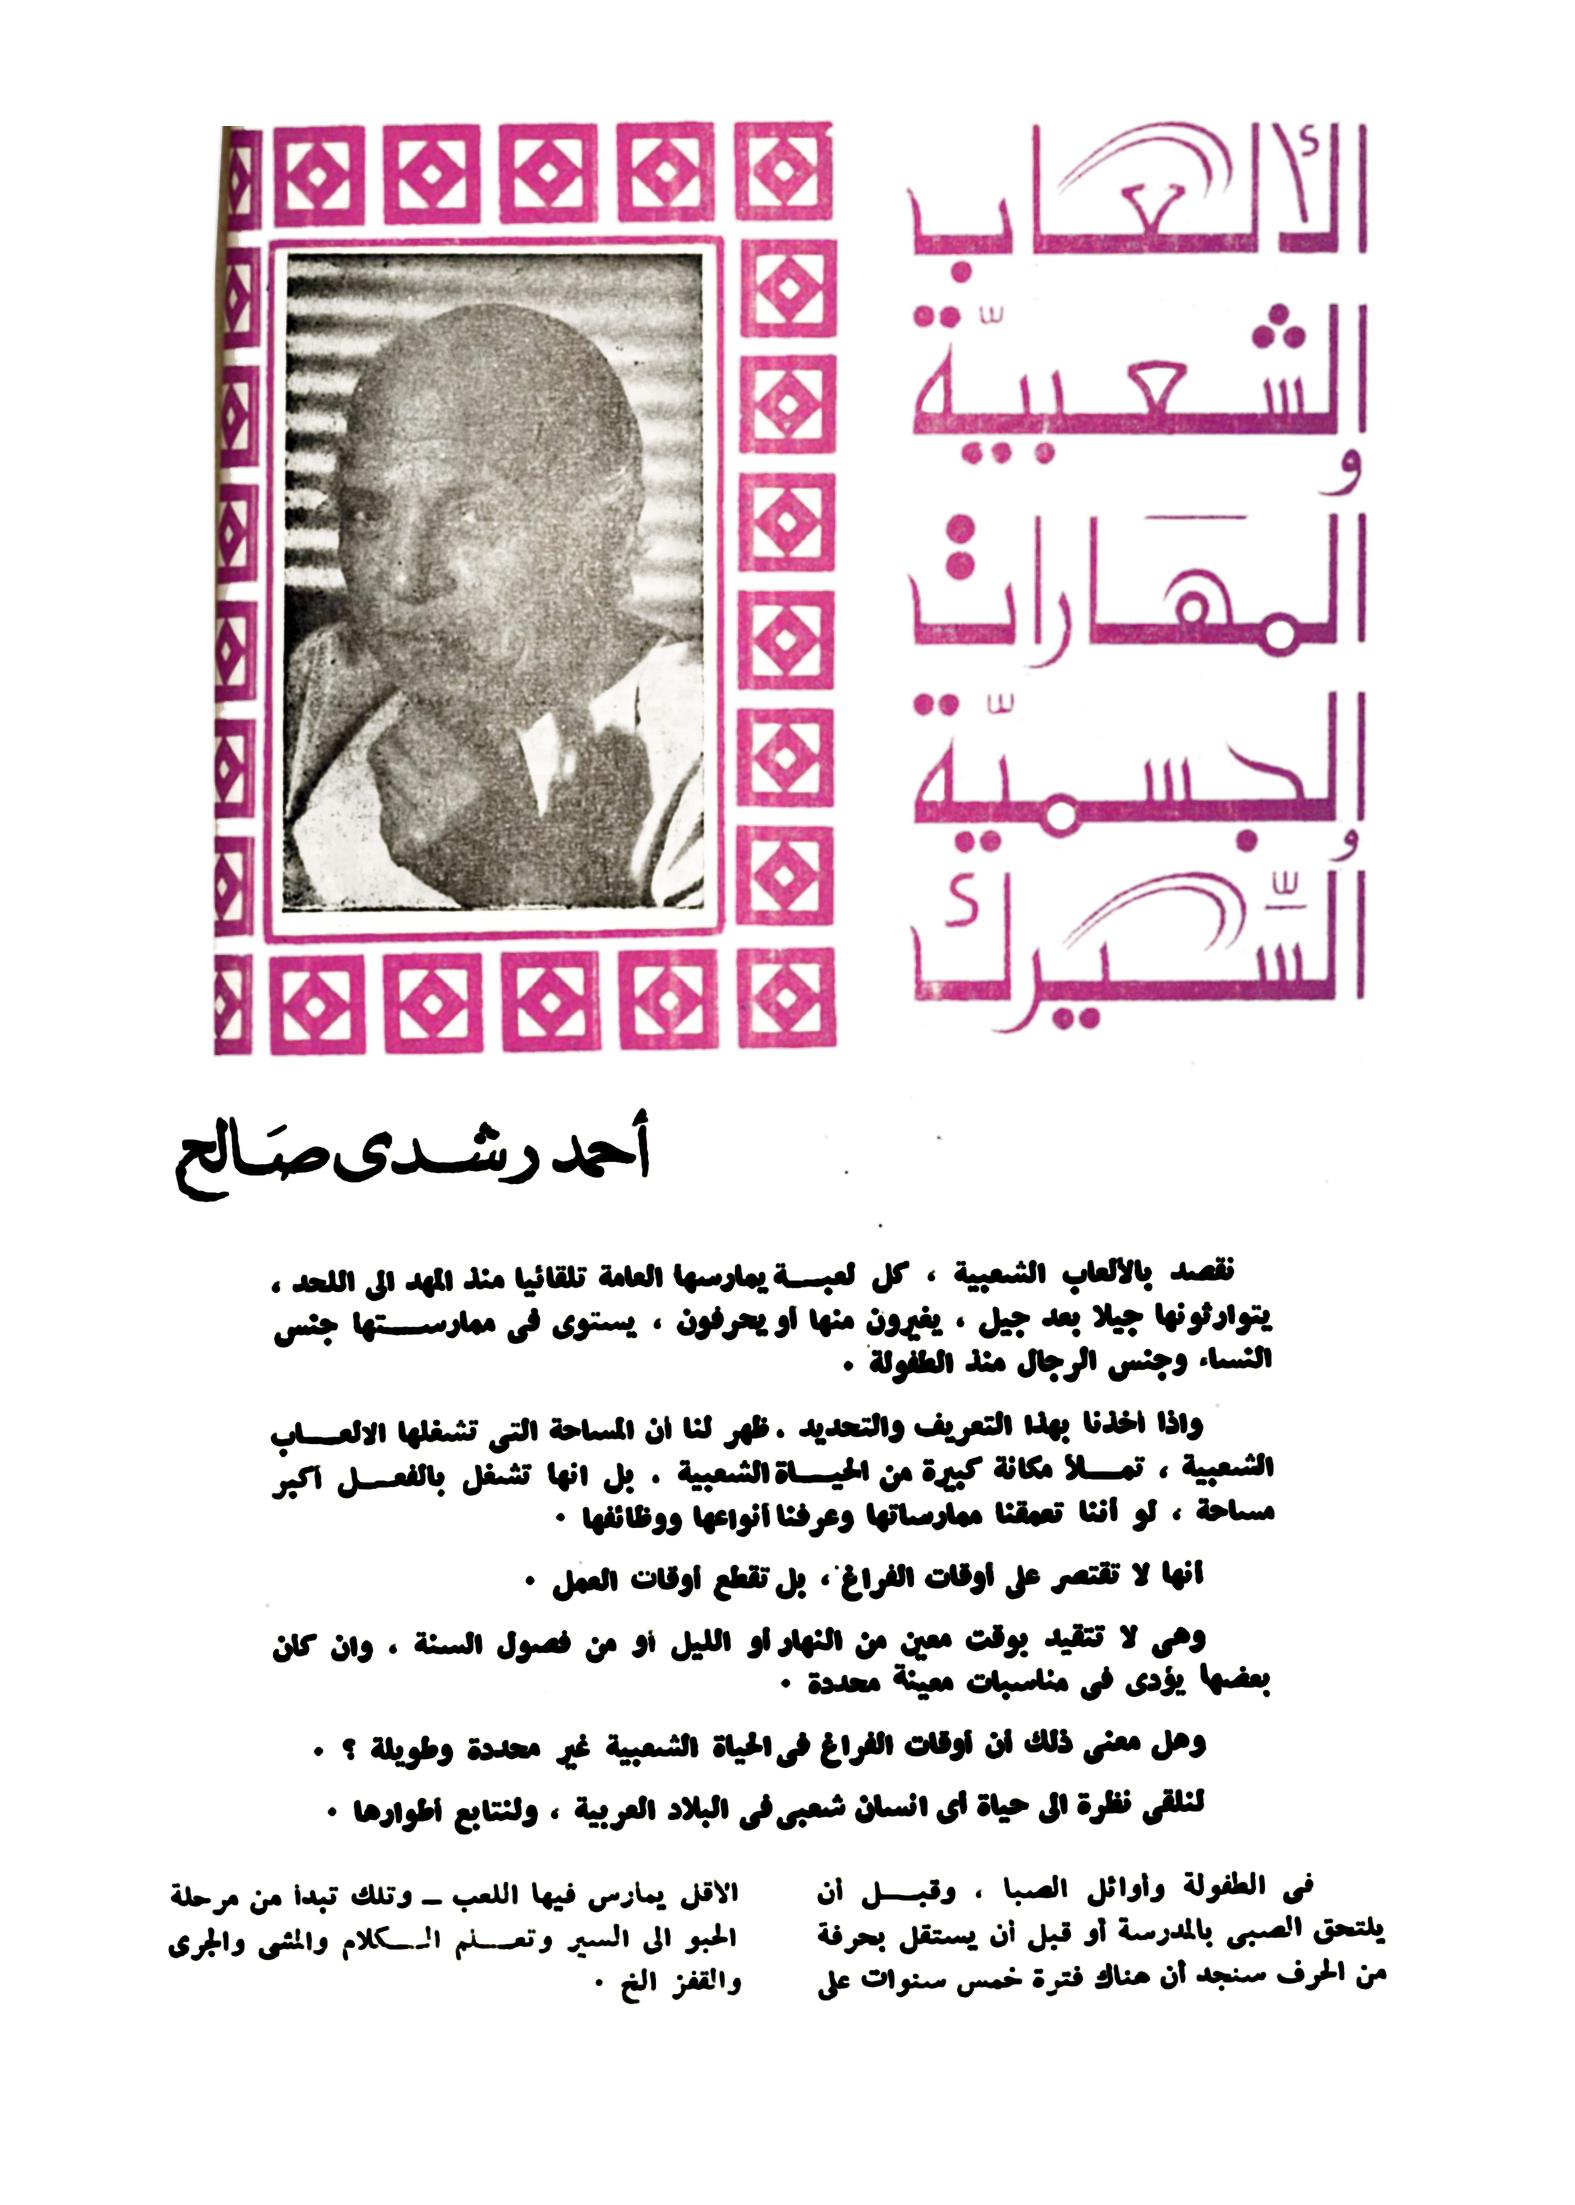 الألعاب
الشعبيّة
و
المهارات
الجسميّة
و
السّيرك
أحمد رشدى صالح
نقصد بالألعاب الشعبية ، كل لعبـــة يمارسها العامة تلقائيا منذ المهد الى اللحد ،
يتوارثونها جيلا بعد جيل ، يغيرون منها أو يحرفون ، يستوى فى ممارســـتها جنس
النساء وجنس الرجال منذ الطفولة .
واذا أخذنا بهذا التعريف والتحديد . ظهر لنا أن المساحة التى تشغلها الالعـــاب
الشعبية ، تمـــلأ مكانة كبيرة من الحيـــاة الشعبية . بل انها تشغل بالفعـــل أكبر
مساحة ، لو أننا تعمقنا ممارساتها وعرفنا أنواعها ووظائفها .
انها لا تقتصر على أوقات الفراغ ، بل تقطع أوقات العمل .
وهى لا تتقيد بوقت معين من النهار أو الليل أو من فصول السنة ، وان كان
بعضها يؤدى فى مناسبات معينة محددة .
وهل معنى ذلك أن أوقات الفراغ فى الحياة الشعبية غير محددة وطويلة ؟ .
لنلقى نظرة الى حياة أى انسان شعبى فى البلاد العربية ، ولنتابع أطوارها .
فى الطفولة وأوائل الصبا ، وقبـــل أن
يلتحق الصبى بالمدرسة أو قبل أن يستقل بحرفة
من الحرف سنجد أن هناك فترة خمس سنوات على
الاقل يمارس فيها اللعب – وتلك تبدأ من مرحلة
الحبو الى السير وتعـــلم الـــكلام والمشى والجرى
والقفز الخ .